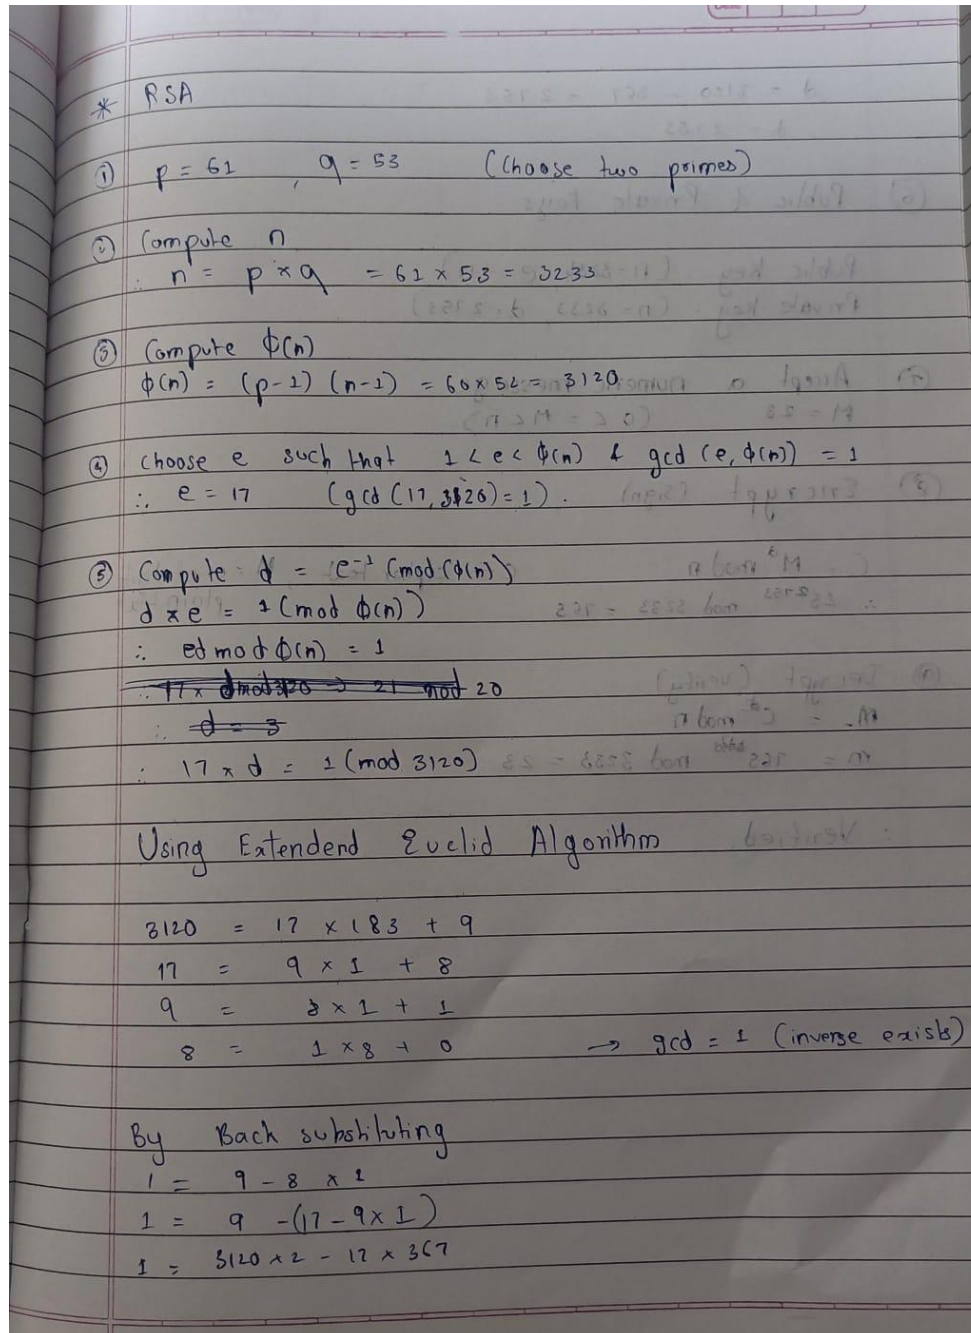 * RSA
① p = 61 , q = 53 (Choose two primes)
② Compute n
∴ n = p × q = 61 × 53 = 3233
③ Compute ϕ(n)
ϕ(n) = (p-1) (n-1) = 60 × 52 = 3120
④ choose e such that 1 < e < ϕ(n) & gcd (e, ϕ(n)) = 1
∴ e = 17 (gcd (17, 3120) = 1).
⑤ Compute d = e⁻¹ (mod (ϕ(n))
d × e = 1 (mod ϕ(n))
∴ ed mod ϕ(n) = 1
∴ 17 × d mod 3120 → 21 mod 20
∴ d = 3
∴ 17 × d = 1 (mod 3120)
Using Extendend Euclid Algorithm
3120 = 17 × 183 + 9
17 = 9 × 1 + 8
9 = 8 × 1 + 1
8 = 1 × 8 + 0 → gcd = 1 (inverse exists)
By Back substituting
1 = 9 - 8 × 1
1 = 9 - (17 - 9 × 1)
1 = 3120 × 2 - 17 × 367